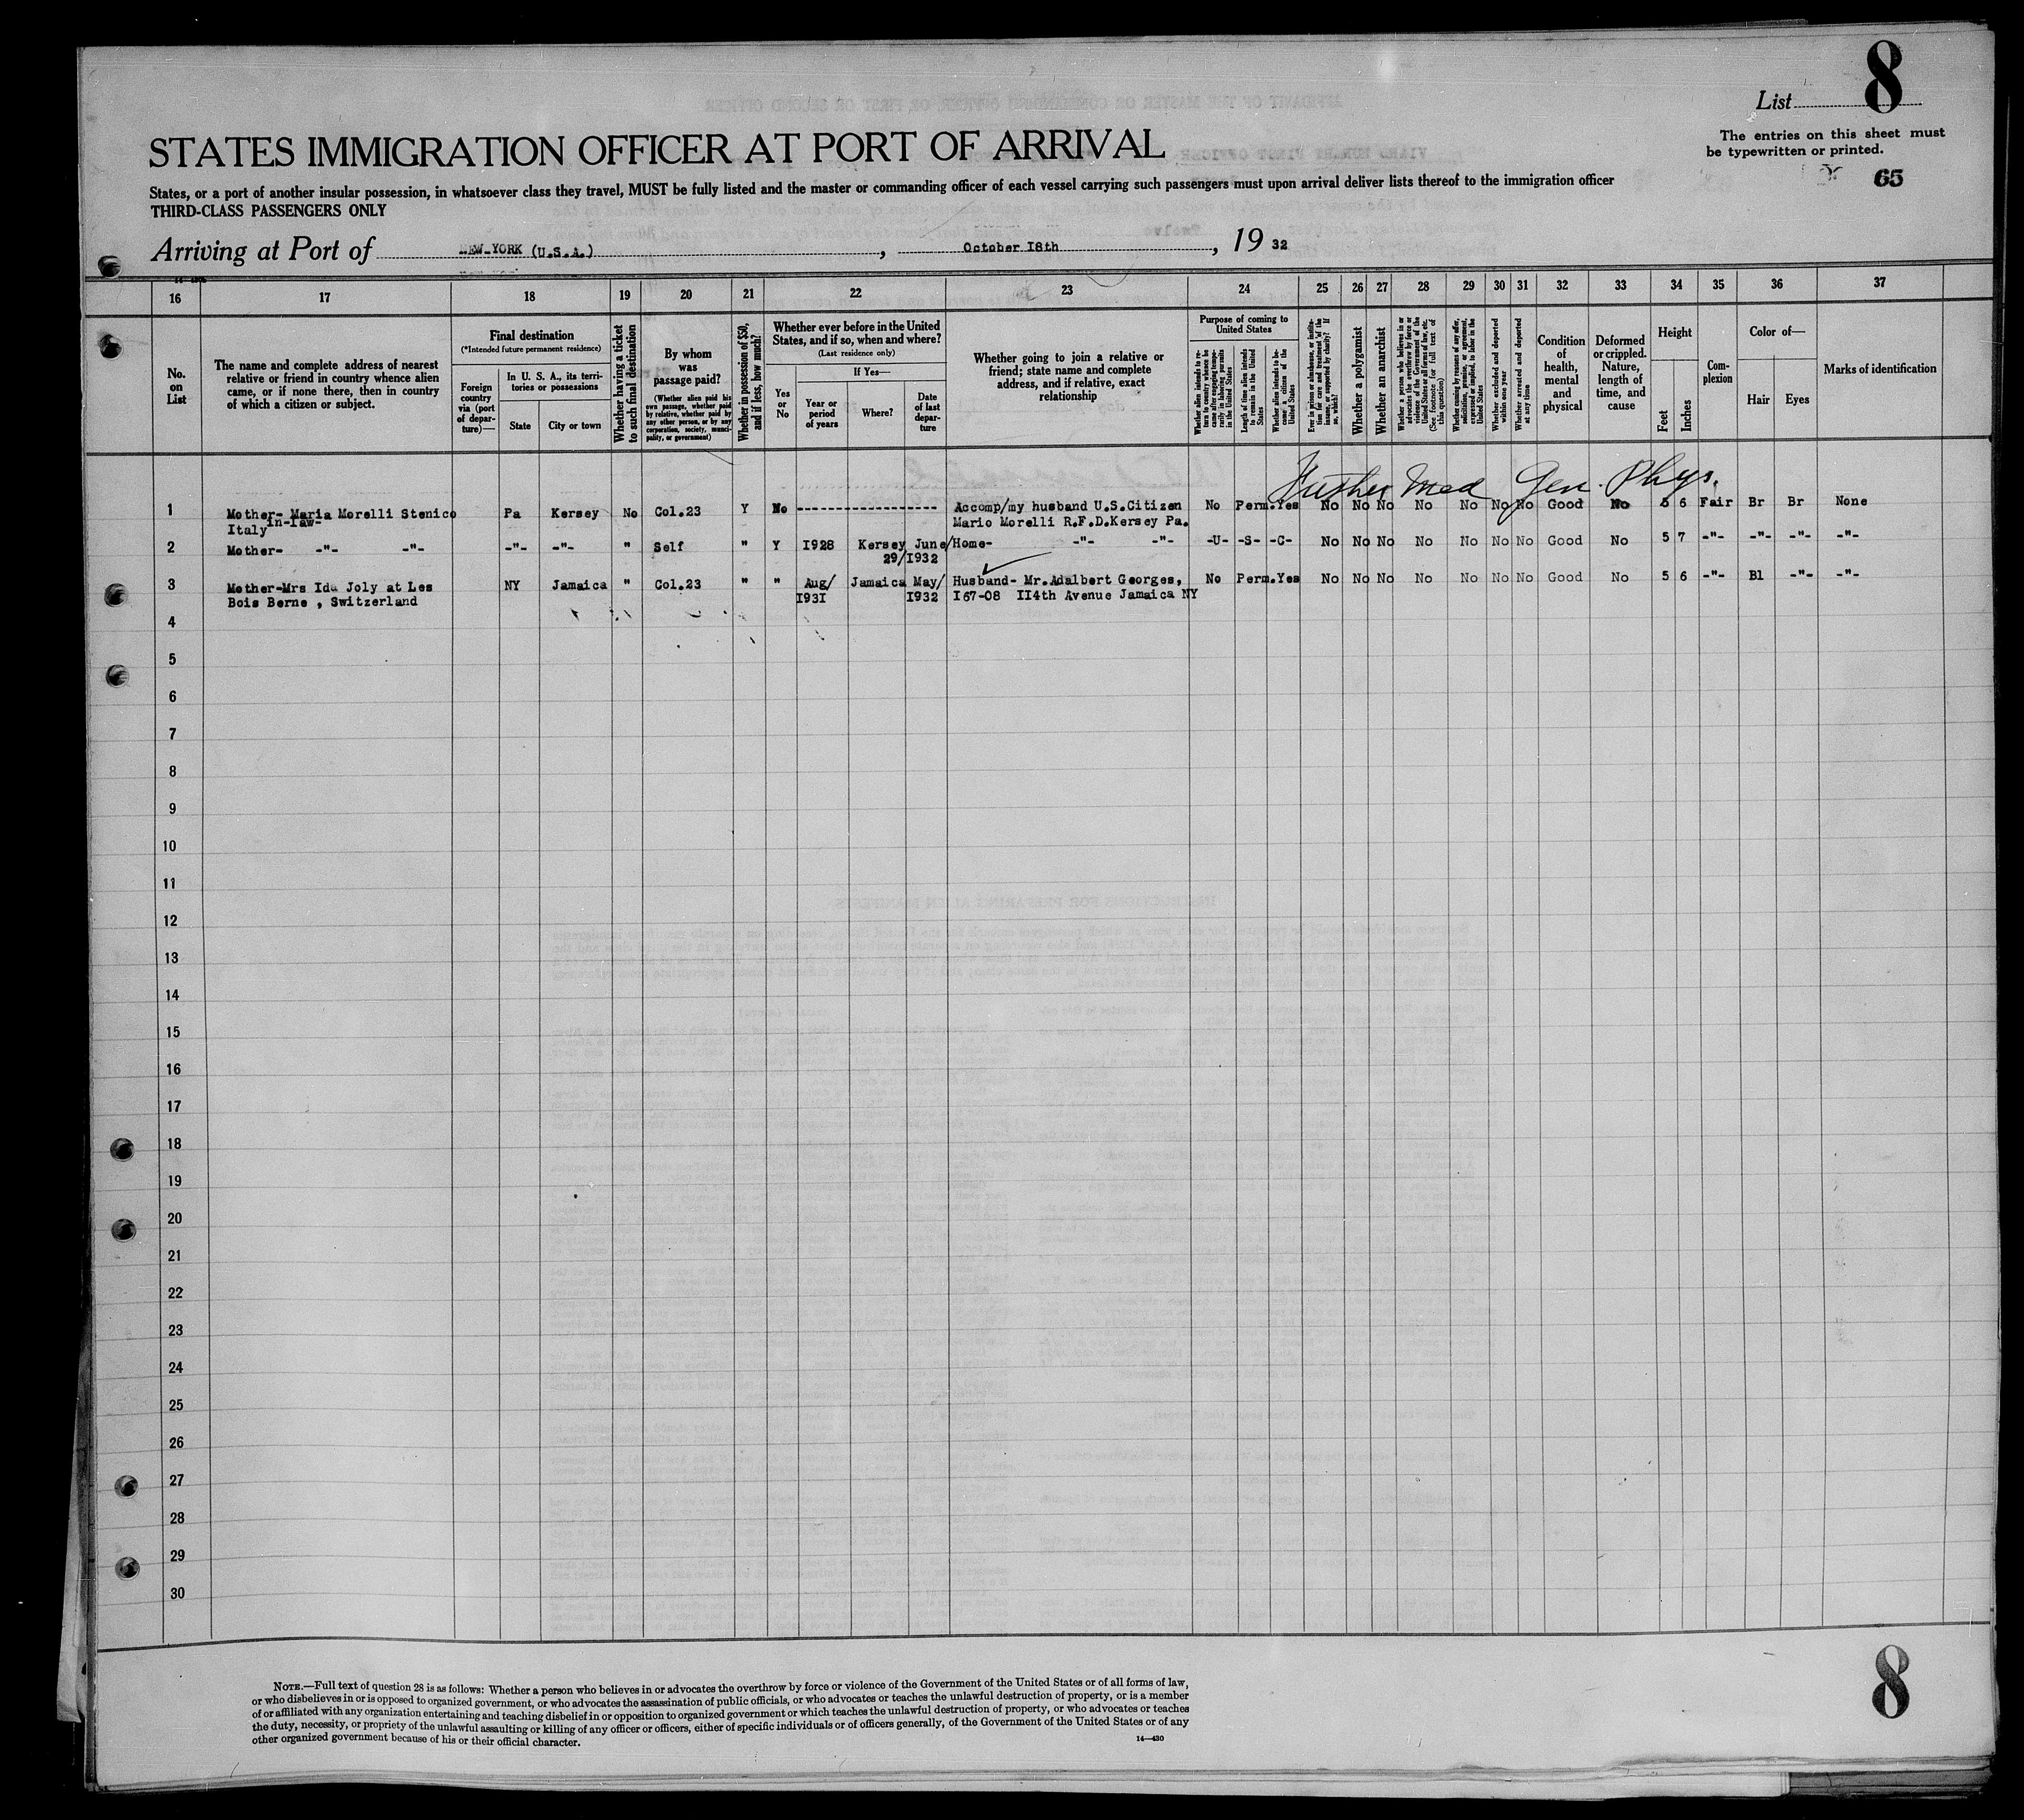 List 8
The entries on this sheet must
be typewritten or printed.
65
STATES IMMIGRATION OFFICER AT PORT OF ARRIVAL
States, or a port of another insular possession, in whatsoever class they travel, MUST be fully listed and the master or commanding officer of each vessel carrying such passengers must upon arrival deliver lists thereof to the immigration officer
THIRD-CLASS PASSENGERS ONLY
Arriving at Port of NEW-YORK (U.S.A.), October I8th, 19 32
16 17 18 19 20 21 22 23 24 25 26 27 28 29 30 31 32 33 34 35 36 37
No. on List
The name and complete address of nearest
relative or friend in country whence alien
came, or if none there, then in country
of which a citizen or subject.
Final destination
(*Intended future permanent residence)
Foreign country via (port of departure)—
In U. S. A., its territories or possessions
State
City or town
Whether having a ticket to such final destination
By whom was passage paid?
(Whether alien paid his own passage, whether paid by relative, whether paid by any other person, or by any corporation, society, municipality, or government)
Whether in possession of $50, and if less, how much?
Whether ever before in the United
States, and if so, when and where?
(Last residence only)
Yes or No
If Yes—
Year or period of years
Where?
Date of last departure
Whether going to join a relative or
friend; state name and complete
address, and if relative, exact
relationship
Purpose of coming to United States
Whether alien intends to return to country whence he came after engaging temporarily in laboring pursuits in the United States
Length of time alien intends to remain in the United States
Whether alien intends to become a citizen of the United States
Ever in prison or almshouse, or institution for care and treatment of the insane, or supported by charity? If so, which?
Whether a polygamist
Whether an anarchist
Whether a person who believes in or advocates the overthrow by force or violence of the Government of the United States or all forms of law, etc. (See footnote for full text of this question)
Whether coming by reasons of any offer, solicitation, promise, or agreement, expressed or implied, to labor in the United States
Whether excluded and deported within one year
Whether arrested and deported at any time
Condition of health, mental and physical
Deformed or crippled. Nature, length of time, and cause
Height
Feet
Inches
Complexion
Color of—
Hair
Eyes
Marks of identification
Med Gen. Phys.
1 Mother- Maria Morelli Stenico Pa Kersey No Col.23 Y No ------------------- Accomp/my husband U.S.Citizen No Perm.Yes No No No No No No No Good No 5 6 Fair Br Br None
in-law-
Italy Mario Morelli R.F.D.Kersey Pa.
2 Mother- -"- -"- -"- -"- " Self " Y I928 Kersey June/Home- -"- -"- -U- -S- -C- No No No No No No No Good No 5 7 -"- -"- -"- -"-
29/I932
3 Mother-Mrs Ida Joly at Les NY Jamaica " Col.23 " " Aug/ Jamaica May/ Husband- Mr.Adalbert Georges, No Perm.Yes No No No No No No No Good No 5 6 -"- Bl -"- -"-
Bois Berne , Switzerland I93I I932 I67-08 II4th Avenue Jamaica NY
4
5
6
7
8
9
10
11
12
13
14
15
16
17
18
19
20
21
22
23
24
25
26
27
28
29
30
NOTE.—Full text of question 28 is as follows: Whether a person who believes in or advocates the overthrow by force or violence of the Government of the United States or of all forms of law,
or who disbelieves in or is opposed to organized government, or who advocates the assassination of public officials, or who advocates or teaches the unlawful destruction of property, or is a member
of or affiliated with any organization entertaining and teaching disbelief in or opposition to organized government or which teaches the unlawful destruction of property, or who advocates or teaches
the duty, necessity, or propriety of the unlawful assaulting or killing of any officer or officers, either of specific individuals or of officers generally, of the Government of the United States or of any
other organized government because of his or their official character.
14—430
8